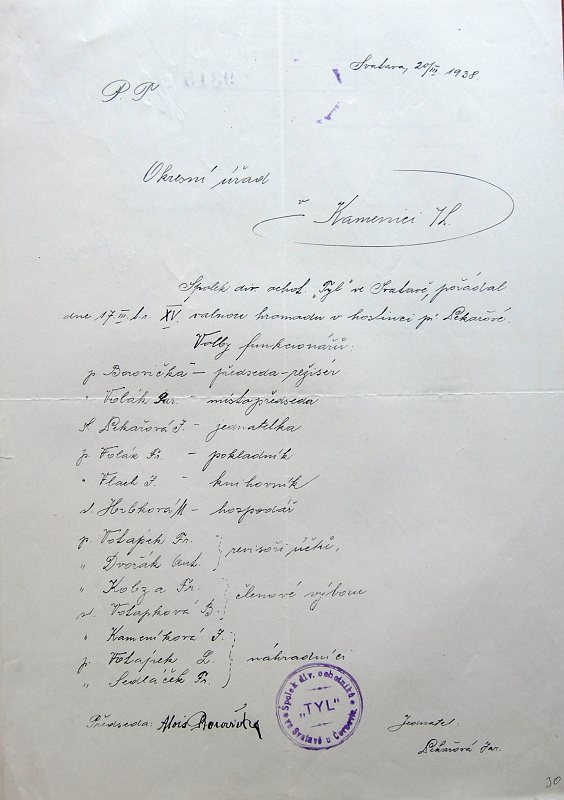 Svatava, 20/III 1938.
P. T.
Okresní úřad
v Kamenici n/L.
Spolek div. ochot. „Tyl" ve Svatavě, pořádal
dne 17. III. t. r. XV. valnou hromadu v hostinci pí Lekařové.
Volby funkcionářů:
p. Borovička – předseda-režisér
" Volák – místopředseda
sl. Lekařová J. – jednatelka
p. Volák Fr. – pokladník
" Vlach J. – knihovník
sl. Hrbková M – hospodář
p. Votápek Fr.
" Dvořák Ant.
revisoři účtů,
" Kobza Fr.
sl. Votápková B.
členové výboru
" Kameníková J.
p. Votápek L.
" Sedláček Fr.
náhradníci
Předseda: Alois Borovička
Spolek div. ochotníků
„TYL"
ve Svatavě u Černovic
Jednatel:
Lekařová Jar.
30